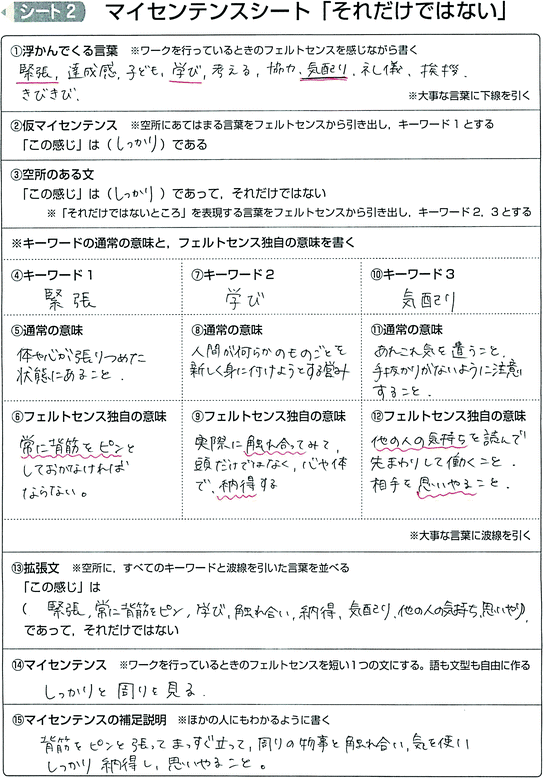 シート2 マイセンテンスシート「それだけではない」
①浮かんでくる言葉 ※ワークを行っているときのフェルトセンスを感じながら書く
緊張，達成感，子ども，学び，考える，協力，気配り，礼儀，挨拶．
きびきび．
※大事な言葉に下線を引く
②仮マイセンテンス ※空所にあてはまる言葉をフェルトセンスから引き出し，キーワード1とする
「この感じ」は（しっかり）である
③空所のある文
「この感じ」は（しっかり）であって，それだけではない
※「それだけではないところ」を表現する言葉をフェルトセンスから引き出し，キーワード2，3とする
※キーワードの通常の意味と，フェルトセンス独自の意味を書く
④キーワード1
緊張
⑦キーワード2
学び
⑩キーワード3
気配り
⑤通常の意味
体や心が張りつめた
状態にあること．
⑧通常の意味
人間が何らかのものごとを
新しく身に付けようとする営み
⑪通常の意味
あれこれ気を遣うこと．
手抜かりがないように注意
すること．
⑥フェルトセンス独自の意味
常に背筋をピンと
しておかなければ
ならない。
⑨フェルトセンス独自の意味
実際に触れ合ってみて，
頭だけではなく，心や体
で，納得する
⑫フェルトセンス独自の意味
他の人の気持ちを読んで
先まわりして働くこと．
相手を思いやること．
※大事な言葉に波線を引く
⑬拡張文 ※空所に，すべてのキーワードと波線を引いた言葉を並べる
「この感じ」は
（ 緊張，常に背筋をピン，学び，触れ合い，納得，気配り，他の人の気持ち，思いやり）
であって，それだけではない
⑭マイセンテンス ※ワークを行っているときのフェルトセンスを短い1つの文にする。語も文型も自由に作る
しっかりと周りを見る．
⑮マイセンテンスの補足説明 ※ほかの人にもわかるように書く
背筋をピンと張ってまっすぐ立って，周りの物事と触れ合い，気を使い
しっかり納得し，思いやること。